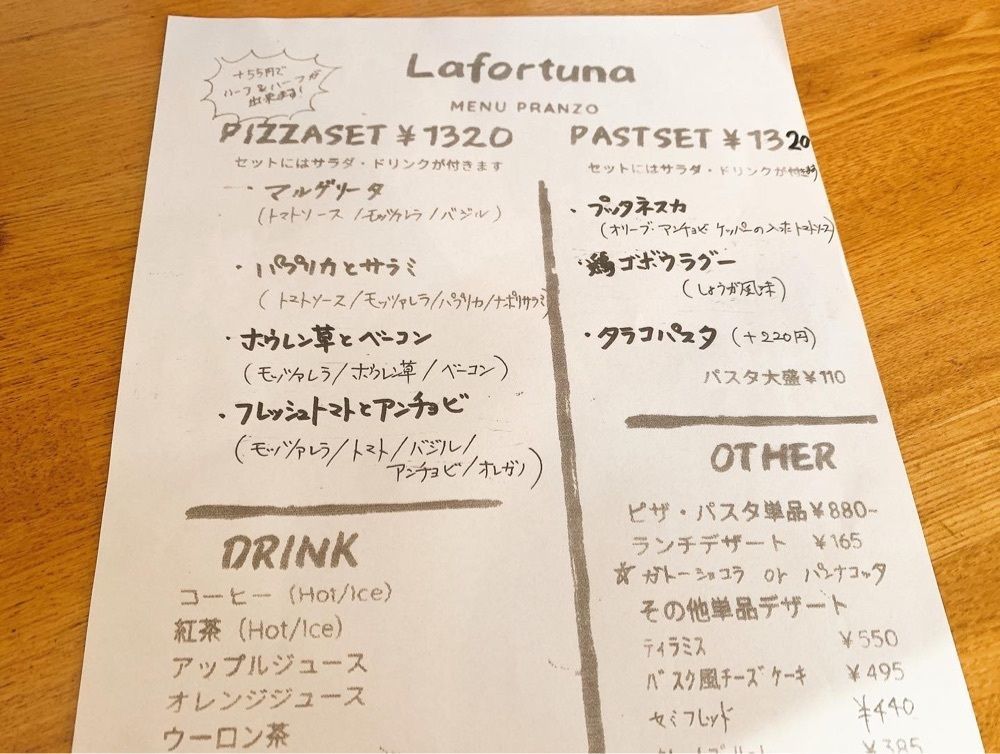 +55円で
ハーフ&ハーフが
出来ます!
Lafortuna
MENU PRANZO
PIZZASET ¥1320
セットにはサラダ・ドリンクが付きます
・マルゲリータ
(トマトソース/モッツァレラ/バジル)
・パプリカとサラミ
(トマトソース/モッツァレラ/パプリカ/ナポリサラミ)
・ホウレン草とベーコン
(モッツァレラ/ホウレン草/ベーコン)
・フレッシュトマトとアンチョビ
(モッツァレラ/トマト/バジル/
アンチョビ/オレガノ)
DRINK
コーヒー (Hot/Ice)
紅茶 (Hot/Ice)
アップルジュース
オレンジジュース
ウーロン茶
PASTSET ¥1320
セットにはサラダ・ドリンクが付きます
・プッタネスカ
(オリーブ・アンチョビ ケッパーの入ったトマトソース)
・鶏ゴボウラグー
(しょうが風味)
・タラコパスタ (+220円)
パスタ大盛¥110
OTHER
ピザ・パスタ単品¥880~
ランチデザート ¥165
☆ガトーショコラ or パンナコッタ
その他単品デザート
ティラミス ¥550
バスク風チーズケーキ ¥495
セミフレッド ¥440
¥385